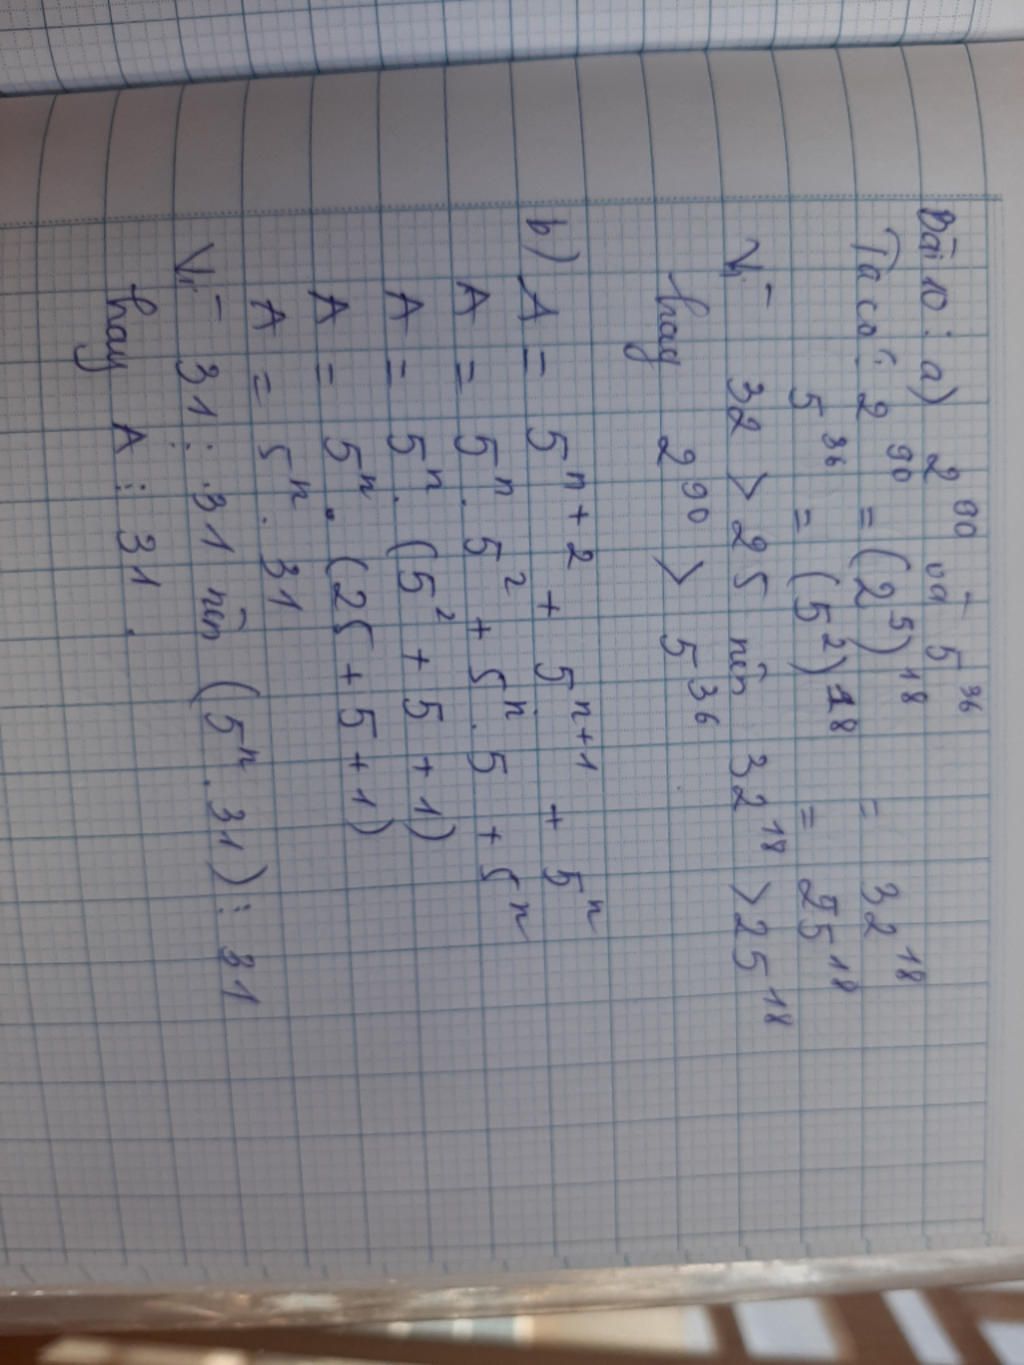 Bài 10: a) 2^90 và 5^36
Ta có: 2^90 = (2^5)^18 = 32^18
5^36 = (5^2)^18 = 25^18
Vì 32 > 25 nên 32^18 > 25^18
hay 2^90 > 5^36
b) A = 5^n+2 + 5^n+1 + 5^n
A = 5^n . 5^2 + 5^n . 5 + 5^n
A = 5^n . (5^2 + 5 + 1)
A = 5^n . (25 + 5 + 1)
A = 5^n . 31
Vì 31 ⋮ 31 nên (5^n . 31) ⋮ 31
hay A ⋮ 31.